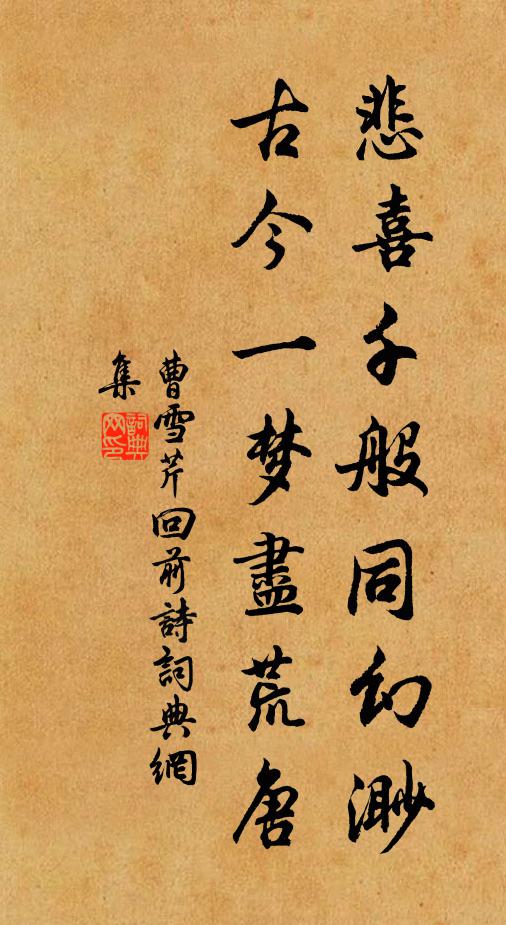 悲喜千般同幻渺
古今一梦盡荒唐
曹雪芹回前詩詞典網
集
詞典網印